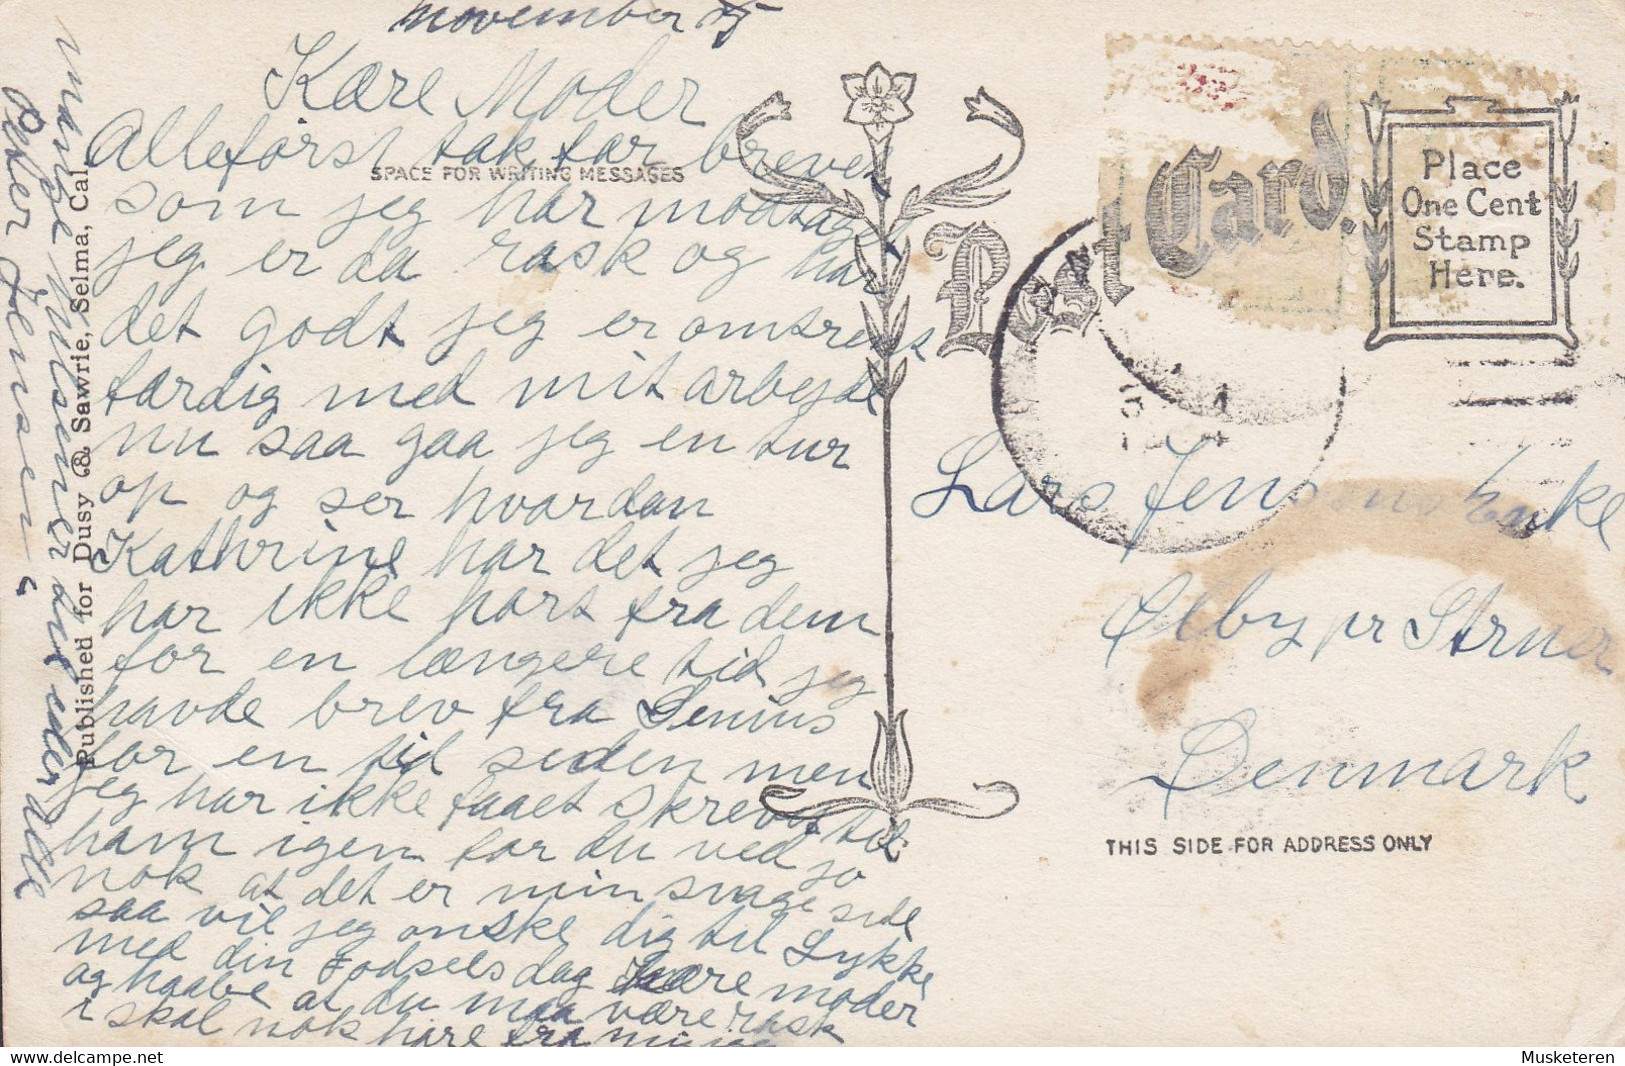 november 15
Kære Moder
Alleførst tak for brevet
SPACE FOR WRITING MESSAGES
som jeg har modtaget
jeg er da rask og har
det godt jeg er omtrent
færdig med mit arbejde
nu saa gaa jeg en tur
op og ser hvordan
Kathrine har det jeg
har ikke hørt fra dem
for en længere tid jeg
havde brev fra Lenius
for en tid siden men
jeg har ikke faaet skrevet til
ham igen for du ved jo
nok at det er min svage side
saa vil jeg ønske dig til Lykke
med din Fødselsdag kære moder
og haabe at du maa være rask
i skal nok høre fra mig
mange hilsener til eder alle
Peter Jensen
Published for Dusy & Sawrie, Selma, Cal.
Post Card.
Place
One Cent
Stamp
Here.
Lars Jensens Enke
Ølby pr Struer
Denmark
THIS SIDE FOR ADDRESS ONLY
Musketeren